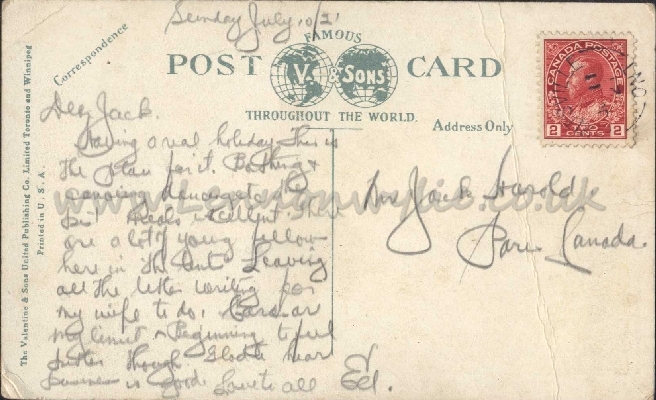 Sunday July 10/21
Correspondence
FAMOUS
POST V. & SONS CARD
THROUGHOUT THE WORLD.
Address Only
The Valentine & Sons United Publishing Co. Limited Toronto and Winnipeg
Printed in U.S.A.
CANADA POSTAGE
2 TWO CENTS 2
ONT
Jack.
Having a real holiday. This is
the place for it. Bathing &
canoeing dancing etc
Meals excellent. There
are a lot of young fellows
here in the tents Leaving
all the letter writing for
my wife to do. Cards are
my limit Beginning to feel
better though. to hear
business is good. Love to all Ed.
Jack Harold
Paris Canada.